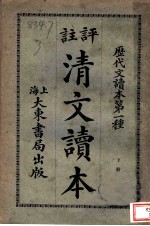 歷代文讀本第一種
評註
清文讀本
下冊
上海
大東書局出版